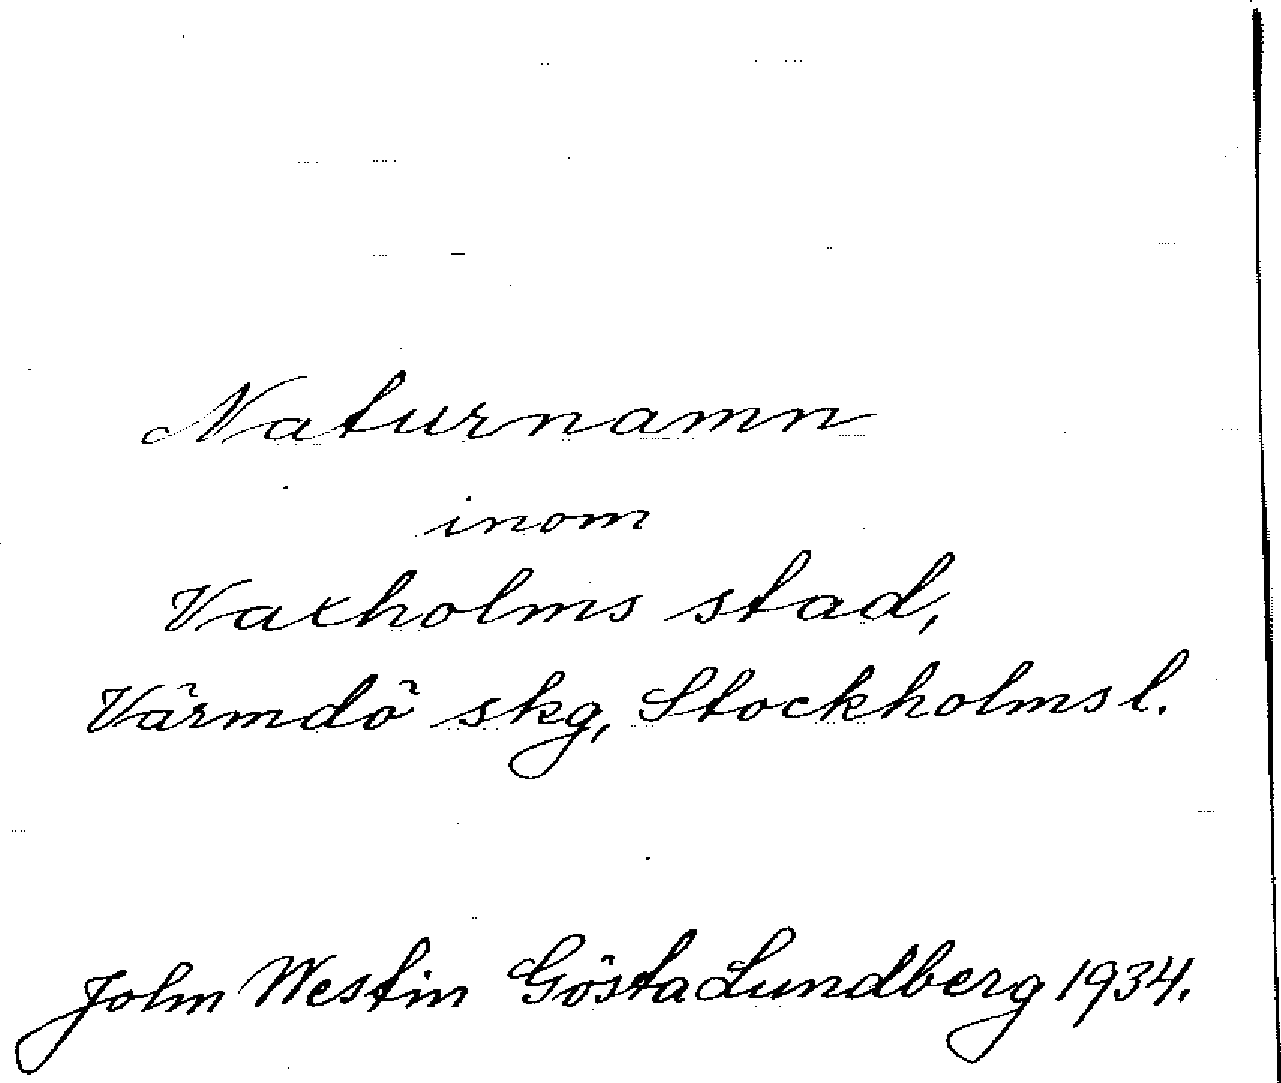 Naturnamn
inom
Vaxholms stad,
Värmdö skg, Stockholms l.
John Westin Gösta Lundberg 1934.